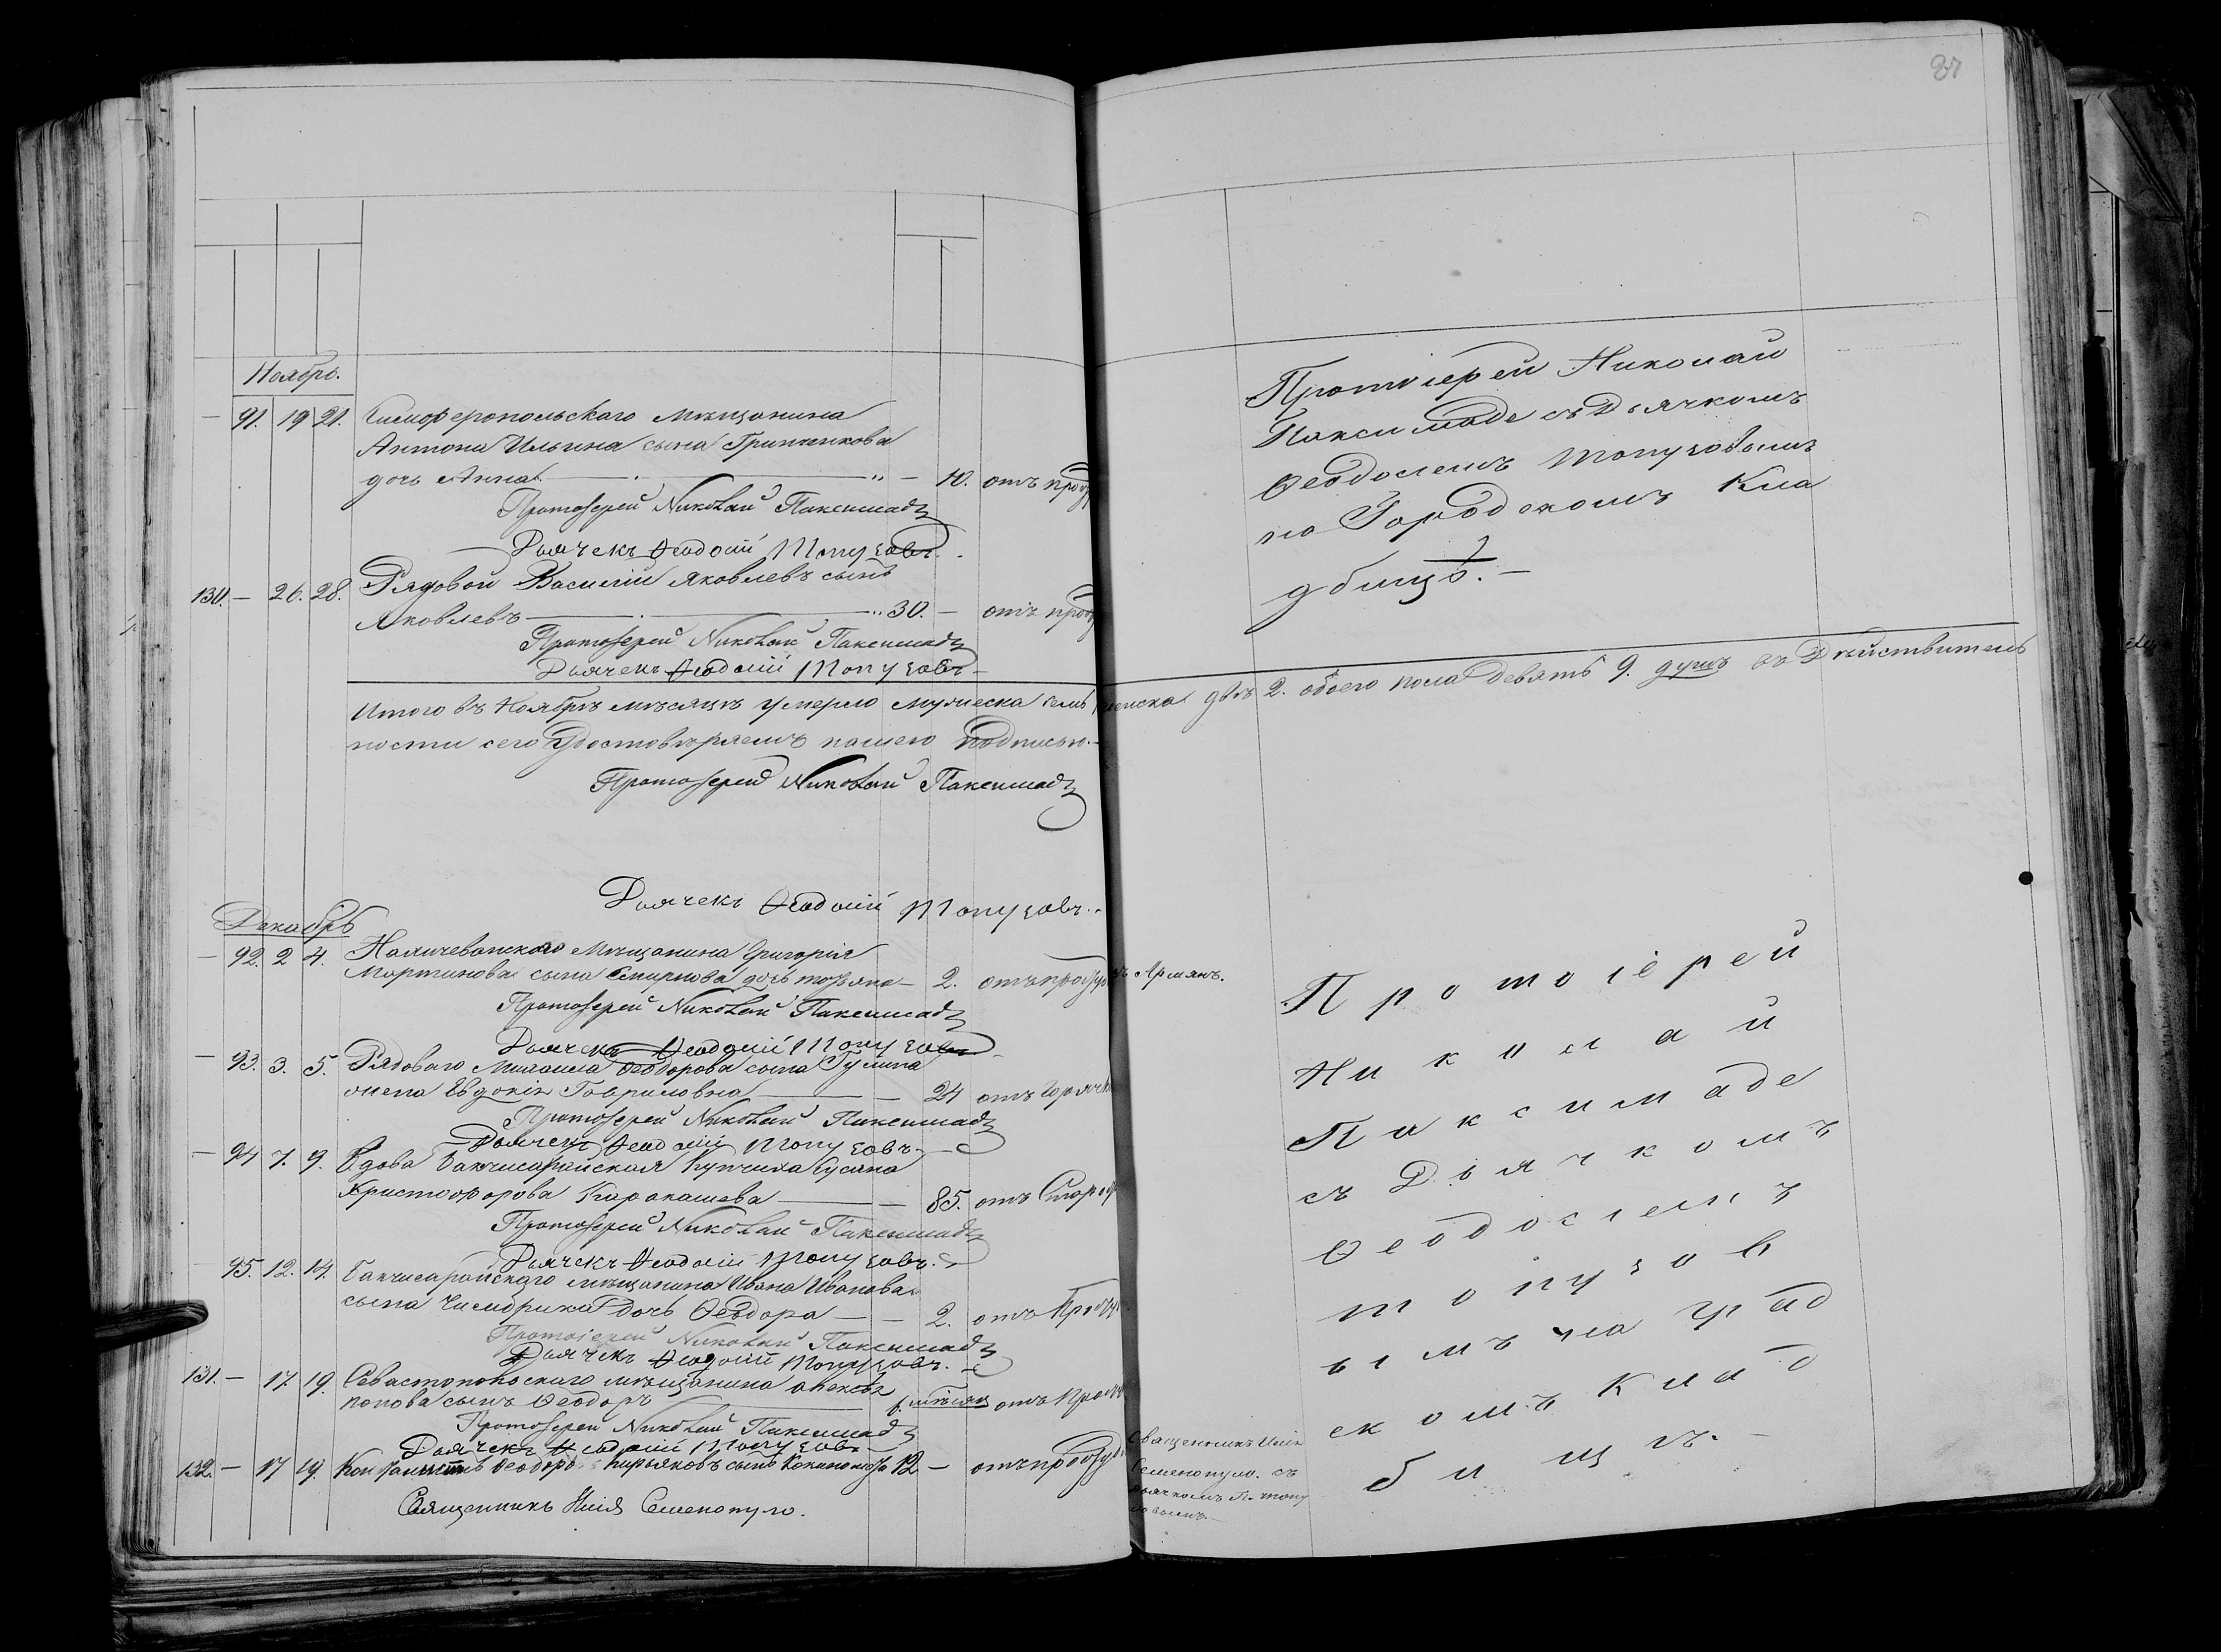 87
Ноябрь.
— 91. 19 21. Симферопольскаго мѣщанина
Антона Ильина сына Гриненкова
дочь Анна — " — 10. отъ прод
Протоіерей Николай Паксимадъ
Дьячекъ Ѳеодосій Топузовъ.
130. — 26. 28. Рядовой Василій Яковлевъ сынъ
Яковлевъ — " 30. — отъ прод
Протоіерей Николай Паксимадъ
Дьячекъ Ѳеодосій Топузовъ
Протоіерей Николай
Паксимаде съ Дьячкомъ
Ѳеодосіемъ Топузовымъ
на Городскомъ Кла
дбищѣ. —
Итого въ Ноябрѣ мѣсяцѣ умерло мужеска семь женска двѣ 2. обоего пола девять 9. душъ въ Дѣйствитель
ности сего удостовѣряемъ нашею подписью. —
Протоіерей Николай Паксимадъ
Дьячекъ Ѳеодосій Топузовъ.
Декабрь
— 92. 2 4. Нахичеванскаго Мѣщанина Григорія
Мартинова сына Смирнова дочь — 2. отъ Армянъ.
Протоіерей Николай Паксимадъ
Дьячекъ Ѳеодосій Топузовъ
— 93. 3. 5. Рядоваго Михаила Ѳеодорова сына Гулина
жена Евдокія Гаврилова — — 24 отъ Горячк
Протоіерей Николай Паксимадъ
Дьячекъ Ѳеодосій Топузовъ
— 94 7. 9. Вдова Бахчисарайская Купчиха Сусана
Христофорова Каракашева — — 85. отъ Старос
Протоіерей Николай Паксимадъ
Дьячекъ Ѳеодосій Топузовъ.
95. 12. 14. Бахчисарайскаго мѣщанина Ивана Иванова
сына Чимдрика дочь Ѳеодора — — 2. отъ Прод
Протоіерей Николай Паксимадъ
Дьячекъ Ѳеодосій Топузовъ.
131. — 17. 19. Севастопольскаго мѣщанина Алексѣя
Попова сынъ Ѳеодоръ — мѣсяц отъ
Протоіерей Николай Паксимадъ
Дьячекъ Ѳеодосій Топузовъ
132. — 17 19. Ѳеодоръ Кирьяковъ сынъ 12 — отъ
Священникъ Илія Семенопуло.
Протоіерей
Николай
Паксимаде
съ Дьячкомъ
Ѳеодосіемъ
Топузов
ымъ на град
скомъ клад
бищѣ. —
Священникъ Илія
Семенопуло. съ
дьячкомъ Ѳ. Топу
зовымъ. —